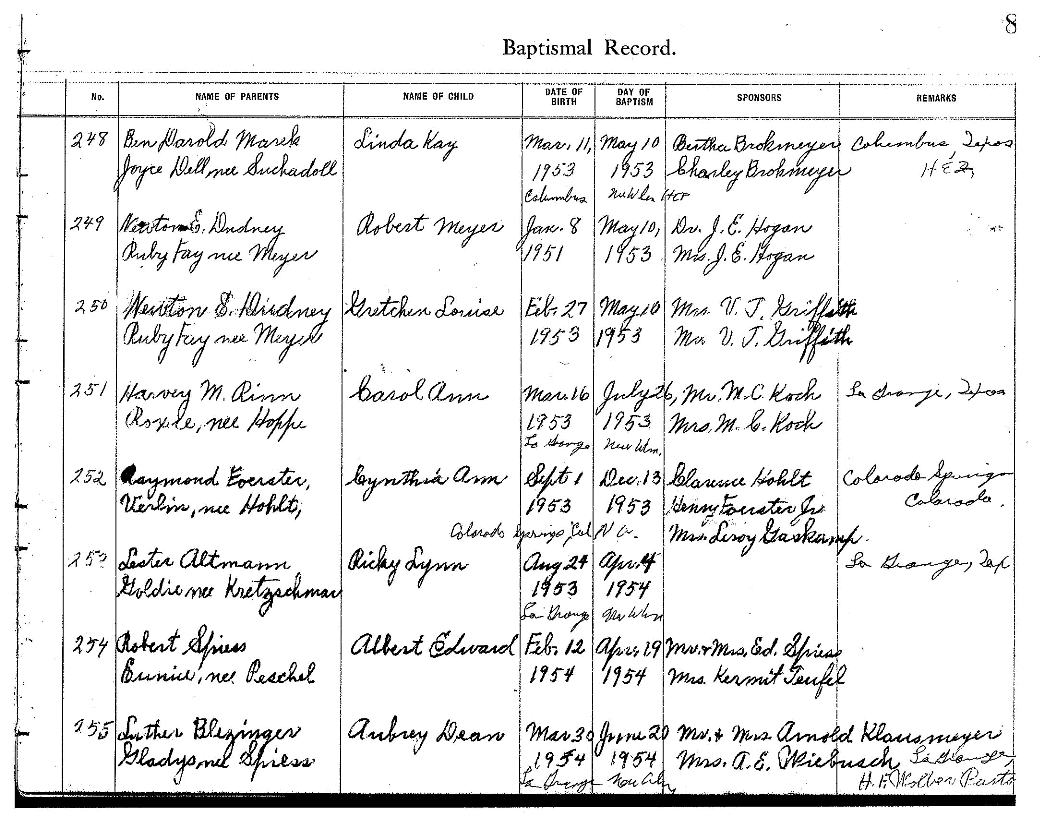 8
Baptismal Record.
No. NAME OF PARENTS NAME OF CHILD DATE OF BIRTH DAY OF BAPTISM SPONSORS REMARKS
248 Ben Darold Marek Linda Kay Mar. 11, May 10 Bertha Brokmeyer Columbus, Texas
Joyce Dell nee Suchadoll 1953 1953 Charley Brokmeyer
Columbus
249 Newton E. Dudney Robert Meyer Jan. 8 May 10, Dr. J. E. Hogan
Ruby Fay nee Meyer 1951 1953 Mrs. J. E. Hogan
250 Newton E. Dudney Gretchen Louise Feb. 27 May 10 Mrs. V. T. Griffith
Ruby Fay nee Meyer 1953 1953 Mr. V. T. Griffith
251 Harvey M. Rinn Carol Ann Mar. 16 July 26, Mr. M. C. Koch La Grange, Texas
nee Hoppe 1953 1953 Mrs. M. C. Koch
La Grange New Ulm,
252 Raymond Foerster, Cynthia Ann Sept 1 Dec. 13 Clarence Hohlt Colorado Springs
Verlin, nee Hohlt, 1953 1953 Henry Foerster Jr Colorado.
Colorado Springs Col N. U. Mrs. Leroy Gaskamp.
253 Lester Altmann Ricky Lynn Aug 24 Apr. 4 La Grange, Tex
Goldie nee Kretzschmar 1953 1954
La Grange New Ulm
254 Robert Spiess Albert Edward Feb. 12 Apr. 19 Mr. & Mrs. Ed. Spiess
Eunice, nee Peschel 1954 1954 Mrs. Kermit Teufel
255 Luther Blezinger Aubrey Dean Mar 30 June 20 Mr. & Mrs Arnold Klausmeyer
Gladys nee Spiess 1954 1954 Mrs. A. E. Wiebusch La Grange,
La Grange New Ulm H. F. Wolber Pastor